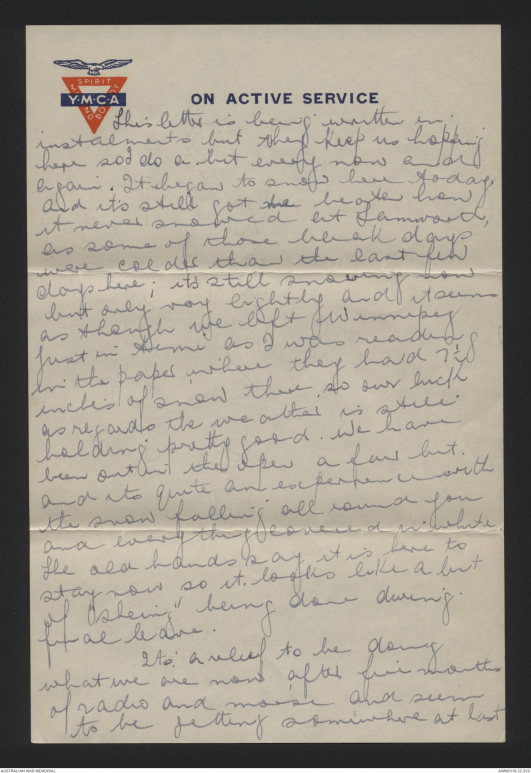 SPIRIT
MIND
BODY
Y·M·C·A
ON ACTIVE SERVICE
This letter is being written in
instalments but they keep us hopping
here so I do a bit every now and
again. It began to snow here today,
and it's still got me beaten how
it never snowed at Tamworth,
as some of those bleak days
were colder than the last few
days here; it's still snowing now
but only very lightly and it seems
as though we left Winnipeg
just in time as I was reading
in the paper where they had 7½
inches of snow there, so our luck
as regards the weather is still
holding pretty good. We have
been out in the open a fair bit.
and its quite an experience with
the snow falling all round you
and everything covered in white.
The old hands say it is here to
stay now so it looks like a bit
of "skeing" being done during
final leave.
Its a relief to be doing
what we are now after five months
of radio and morse and seem
to be getting somewhere at last
AUSTRALIAN WAR MEMORIAL